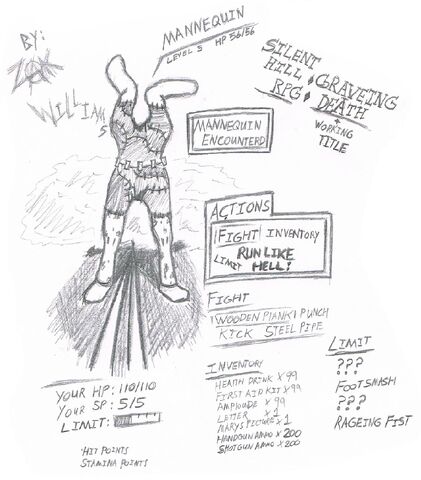 BY:
ZAK
WILLIAMS
MANNEQUIN
LEVEL 5 HP 56/56
SILENT
HILL : CGRAVEING
RPG : DEATH
WORKING
TITLE
MANNEQUIN
ENCOUNTERD
ACTIONS
FIGHT INVENTORY
LIMIT RUN LIKE
HELL!
FIGHT
WOODEN PLANK PUNCH
KICK STEEL PIPE
INVENTORY
HEALTH DRINK X 99
FIRST AID KIT X 99
AMPLOUDE X 99
LETTER X 1
MARYS PICTURE X 1
HANDGUN AMMO X 200
SHOTGUN AMMO X 200
LIMIT
???
FOOT SMASH
???
RAGEING FIST
YOUR HP: 110/110
YOUR SP: 5/5
LIMIT:
*HIT POINTS
STAMINA POINTS